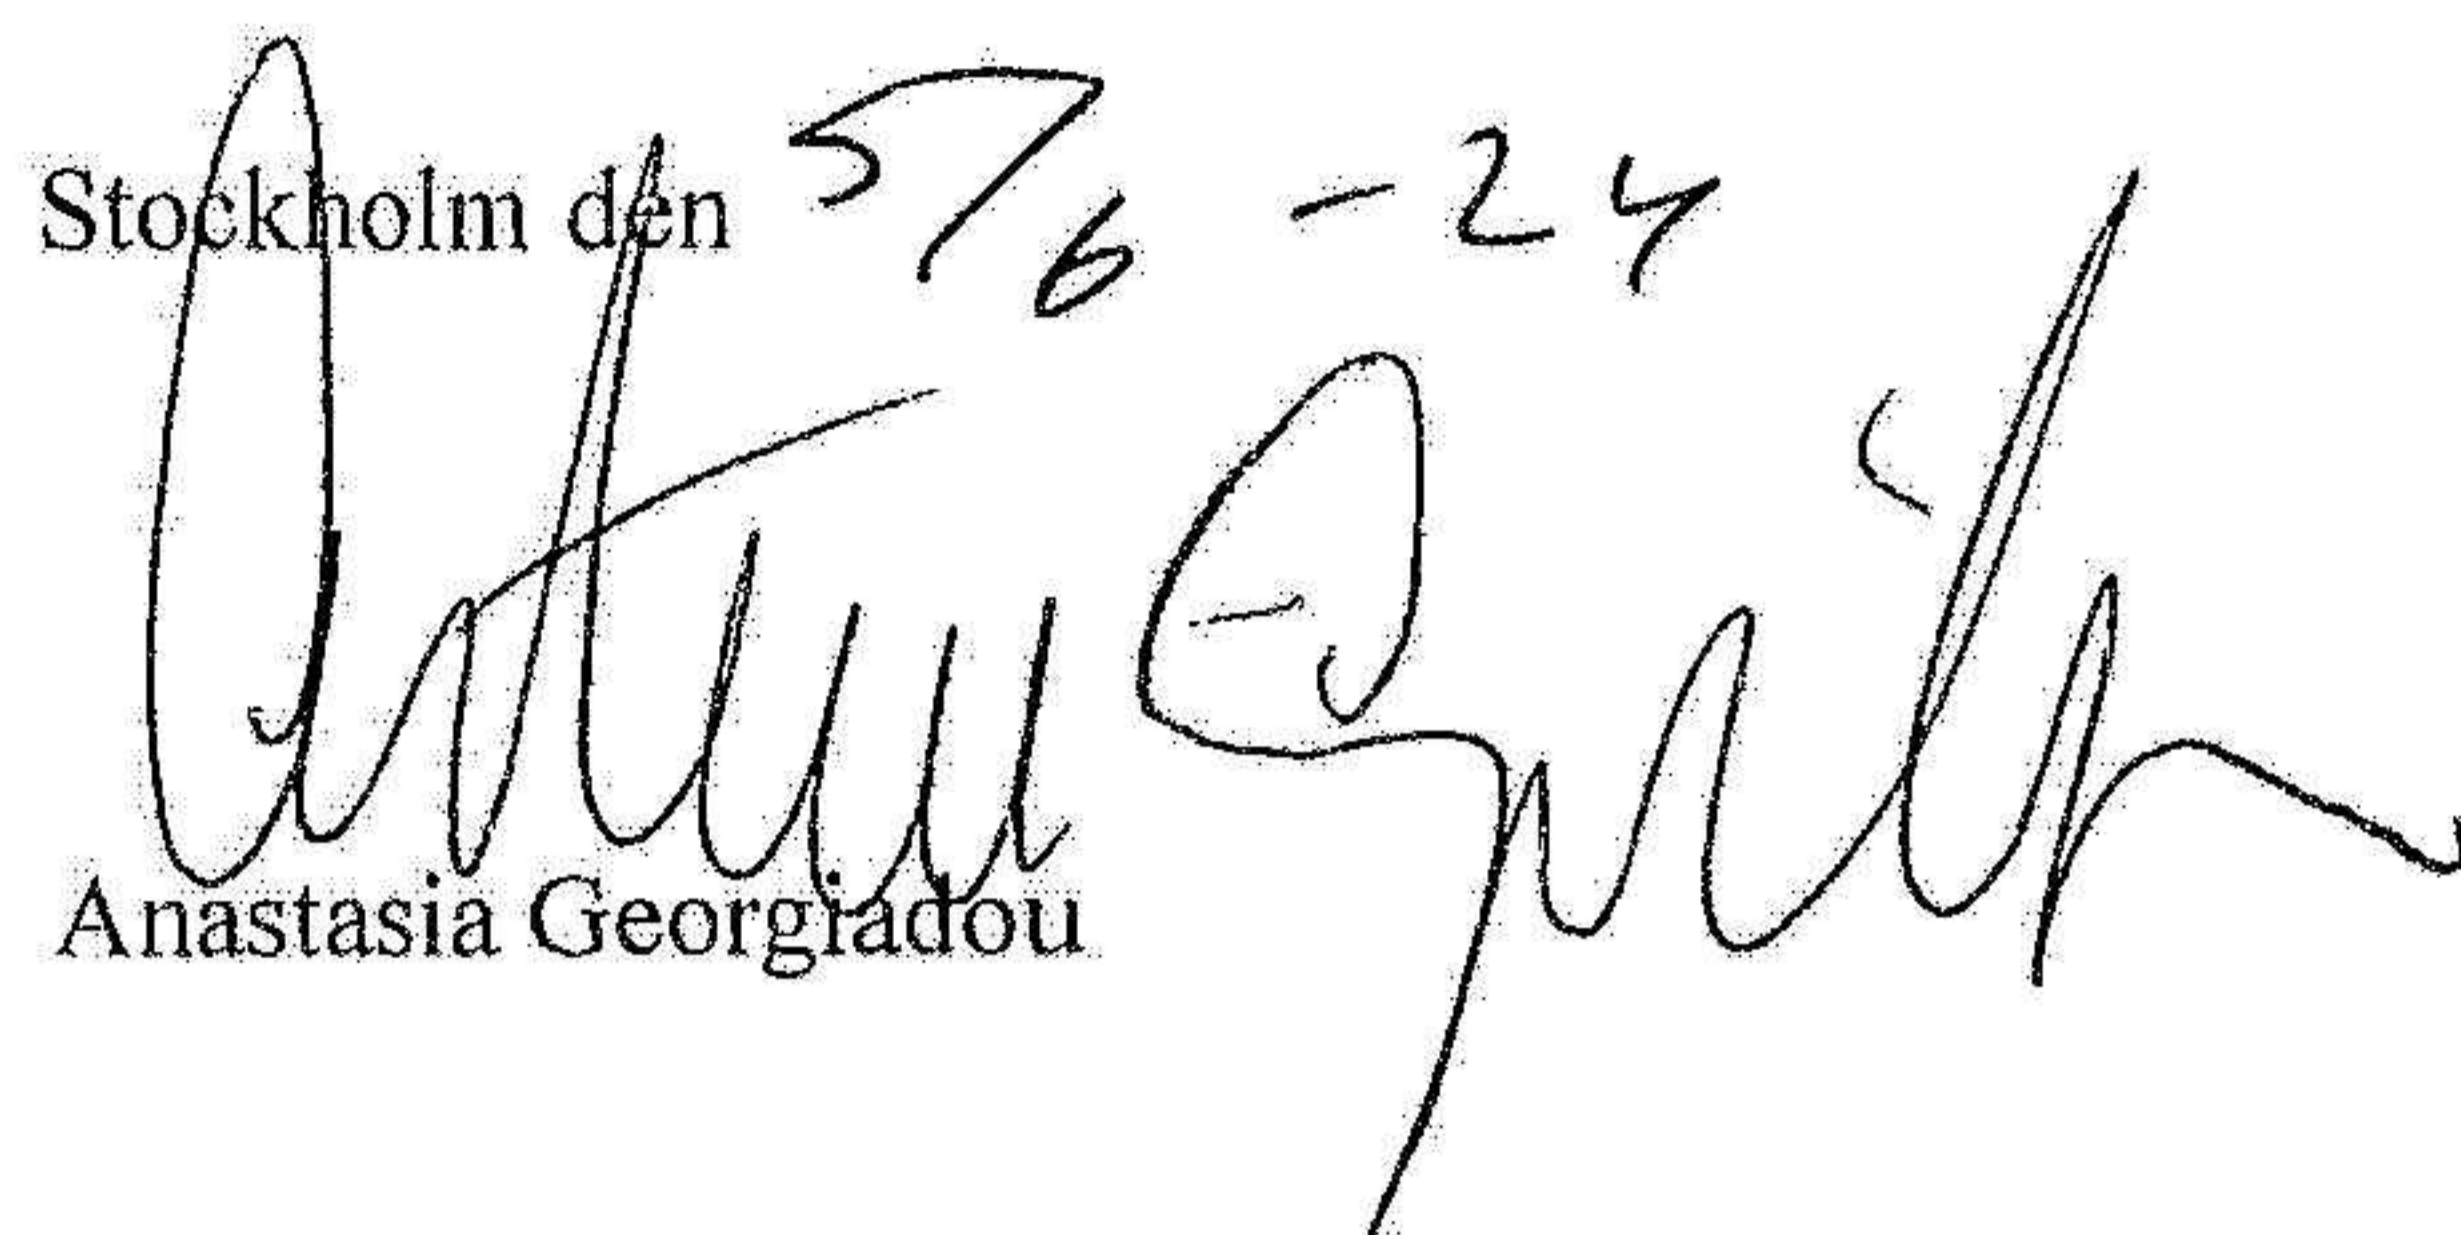 Stockholm den 5/6 -24
Anastasia Georgiadou